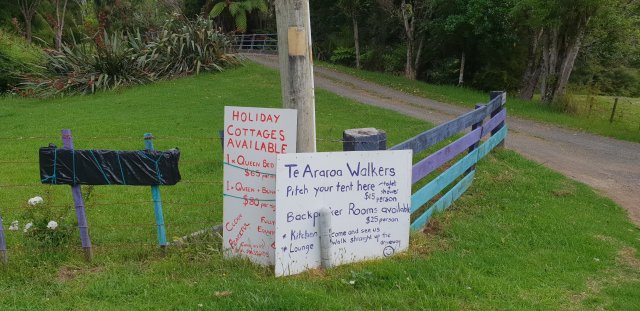 HOLIDAY
COTTAGES
AVAILABLE
1 x QUEEN BED
$65 per
1 x QUEEN +
$80 per
TE ARAROA WALKERS
Pitch your tent here
toilet
shower
$15 person
Backpacker Rooms available
$25 person
* Kitchen
come and see us
* Lounge
walk straight up the
driveway